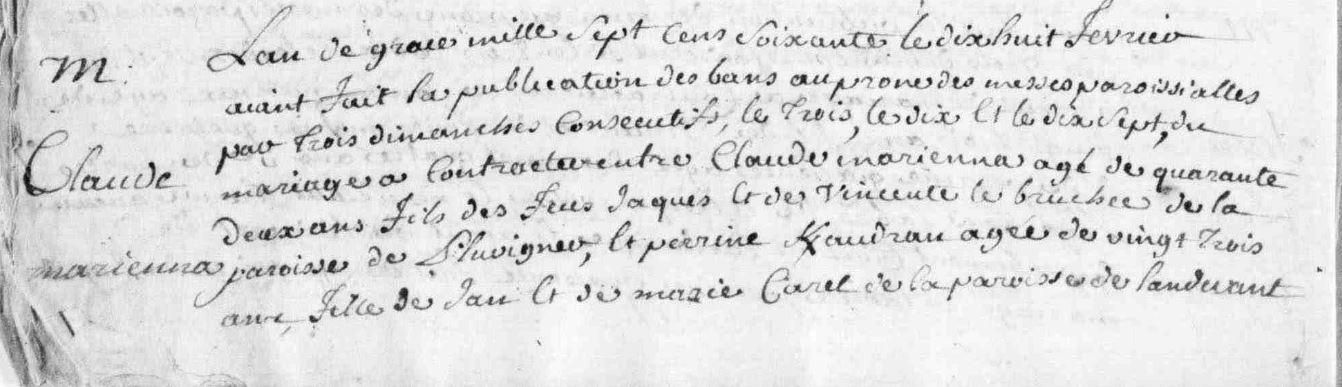 M.
Claude
marienna
Lan de grace mille sept cens soixante le dix huit fevrier
aiant fait la publication des bans au prone des messes paroissialles
par trois dimanches consecutifs, le trois, le dix et le dix sept, du
mariage a contracter entre Claude marienna agé de quarante
deux ans fils des feus Jaques et de Vincente le bruchec de la
paroisse de Pluvigner, et perrine Kaudran agée de vingt trois
ans, fille de Jan et de marie Carel de la paroisse de landevant